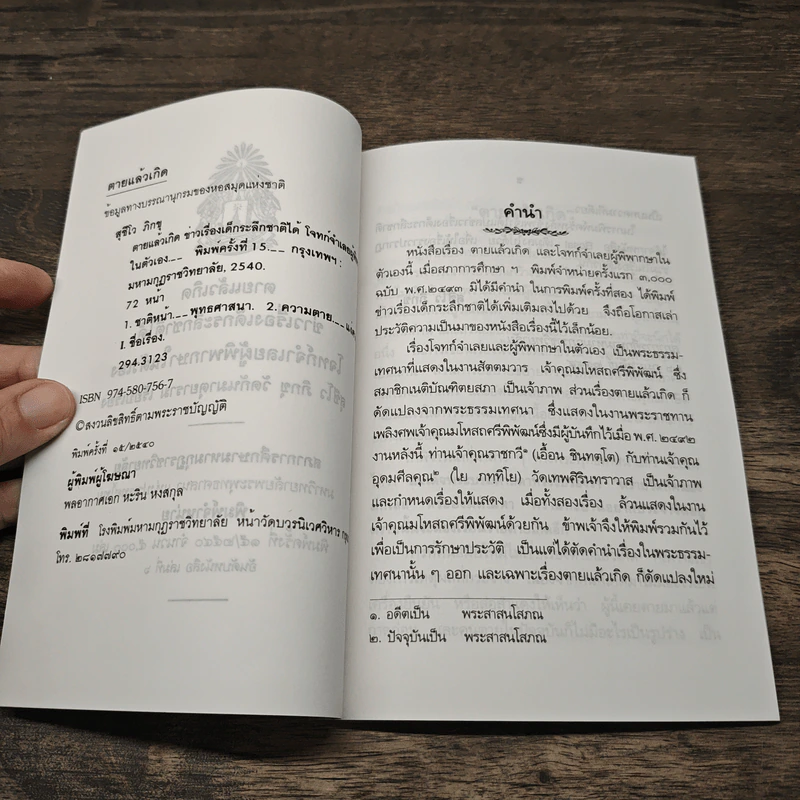 ตายแล้วเกิด
ข้อมูลทางบรรณานุกรมของหอสมุดแห่งชาติ
สุชีโว ภิกขุ
ตายแล้วเกิด ข่าวเรื่องเด็กระลึกชาติได้ โจทก์จำเลย
ในตัวเอง.__ พิมพ์ครั้งที่ 15.__ กรุงเทพฯ :
มหามกุฏราชวิทยาลัย, 2540.
72 หน้า
1. ชาติหน้า.__พุทธศาสนา. 2. ความตาย.__
I. ชื่อเรื่อง.
294.3123
ISBN 974-580-756-7
© สงวนลิขสิทธิ์ตามพระราชบัญญัติ
พิมพ์ครั้งที่ ๑๕/๒๕๔๐
ผู้พิมพ์ผู้โฆษณา
พลอากาศเอก หะริน หงสกุล
พิมพ์ที่ โรงพิมพ์มหามกุฏราชวิทยาลัย หน้าวัดบวรนิเวศวิหาร
โทร. ๒๘๑๗๗๙๐
คำนำ
หนังสือเรื่อง ตายแล้วเกิด และโจทก์จำเลยผู้พิพากษาใน
ตัวเองนี้ เมื่อสภาการศึกษา ฯ พิมพ์จำหน่ายครั้งแรก ๓,๐๐๐
ฉบับ พ.ศ.๒๔๙๓ มิได้มีคำนำ ในการพิมพ์ครั้งที่สอง ได้พิมพ์
ข่าวเรื่องเด็กระลึกชาติได้เพิ่มเติมลงไปด้วย จึงถือโอกาสเล่า
ประวัติความเป็นมาของหนังสือเรื่องนี้ไว้เล็กน้อย.
เรื่องโจทก์จำเลยและผู้พิพากษาในตัวเอง เป็นพระธรรม-
เทศนาที่แสดงในงานสัตตมวาร เจ้าคุณมโหสถศรีพิพัฒน์ ซึ่ง
สมาชิกเนติบัณฑิตยสภา เป็นเจ้าภาพ ส่วนเรื่องตายแล้วเกิด ก็
ดัดแปลงจากพระธรรมเทศนา ซึ่งแสดงในงานพระราชทาน
เพลิงศพเจ้าคุณมโหสถศรีพิพัฒน์ซึ่งมีผู้บันทึกไว้เมื่อ พ.ศ. ๒๔๙๒
งานหลังนี้ ท่านเจ้าคุณราชกวี๑ (เอื้อน ชินทตฺโต) กับท่านเจ้าคุณ
อุดมศีลคุณ๒ (ใย ภทฺทิโย) วัดเทพศิรินทราวาส เป็นเจ้าภาพ
และกำหนดเรื่องให้แสดง เมื่อทั้งสองเรื่อง ล้วนแสดงในงาน
เจ้าคุณมโหสถศรีพิพัฒน์ด้วยกัน ข้าพเจ้าจึงให้พิมพ์รวมกันไว้
เพื่อเป็นการรักษาประวัติ เป็นแต่ได้ตัดคำนำเรื่องในพระธรรม-
เทศนานั้น ๆ ออก และเฉพาะเรื่องตายแล้วเกิด ก็ดัดแปลงใหม่
๑. อดีตเป็น พระสาสนโสภณ
๒. ปัจจุบันเป็น พระสาสนโสภณ